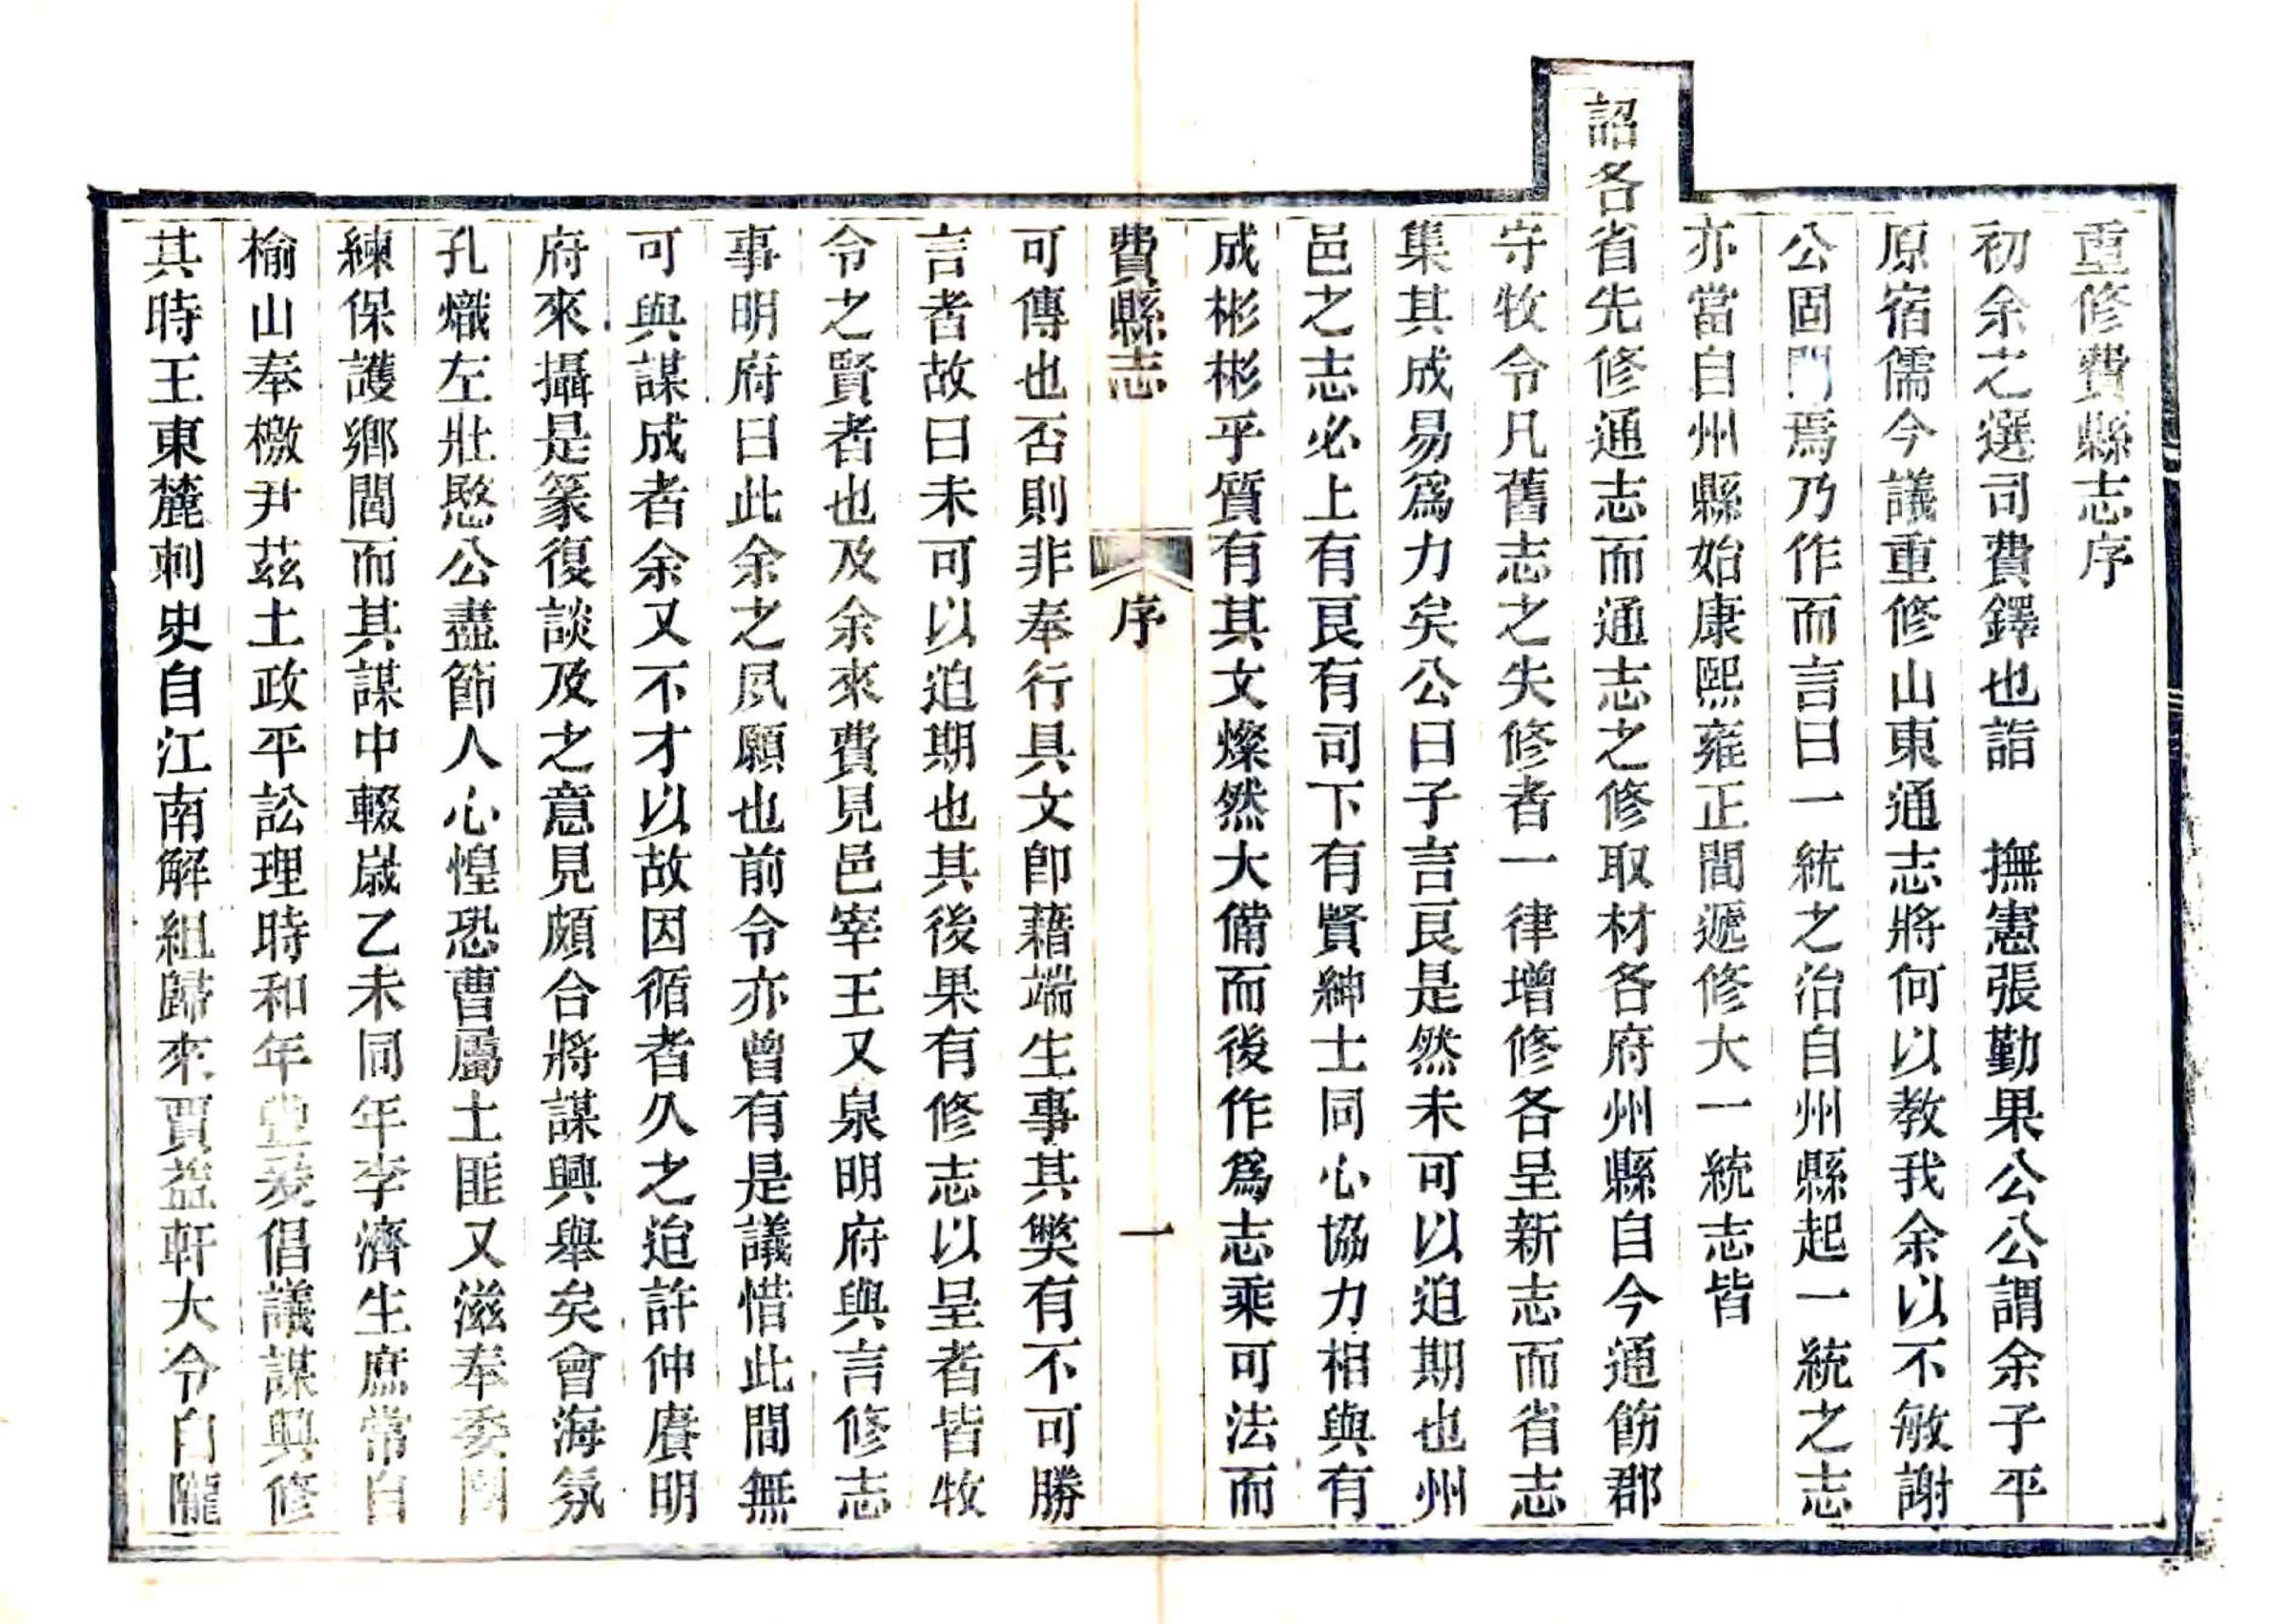 重修費縣志序
初余之選司費鐸也詣　撫憲張勤果公公謂余子平
原宿儒今議重修山東通志將何以教我余以不敏謝
公固問焉乃作而言曰一統之治自州縣起一統之志
亦當自州縣始康熙雍正間遞修大一統志皆
詔各省先修通志而通志之修取材各府州縣自今通飭郡
守牧令凡舊志之失修者一律增修各呈新志而省志
集其成易為力矣公曰子言良是然未可以迫期也州
邑之志必上有良有司下有賢紳士同心協力相與有
成彬彬乎質有其文燦然大備而後作為志乘可法而
費縣志　序　一
可傳也否則非奉行具文卽藉端生事其獘有不可勝
言者故曰未可以迫期也其後果有修志以呈者皆牧
令之賢者也及余來費見邑宰王又泉明府與言修志
事明府曰此余之夙願也前令亦曾有是議惜此間無
可與謀成者余又不才以故因循者久之迨許仲賡明
府來攝是篆復談及之意見頗合將謀興舉矣會海氛
孔熾左壯愍公盡節人心惶恐曹屬土匪又滋奉委團
練保護鄉閭而其謀中輟歲乙未同年李濟生庶常自
榆山奉檄尹茲土政平訟理時和年豐爰倡議謀興修
其時王東麓刺史自江南解組歸來賈益軒大令自隴